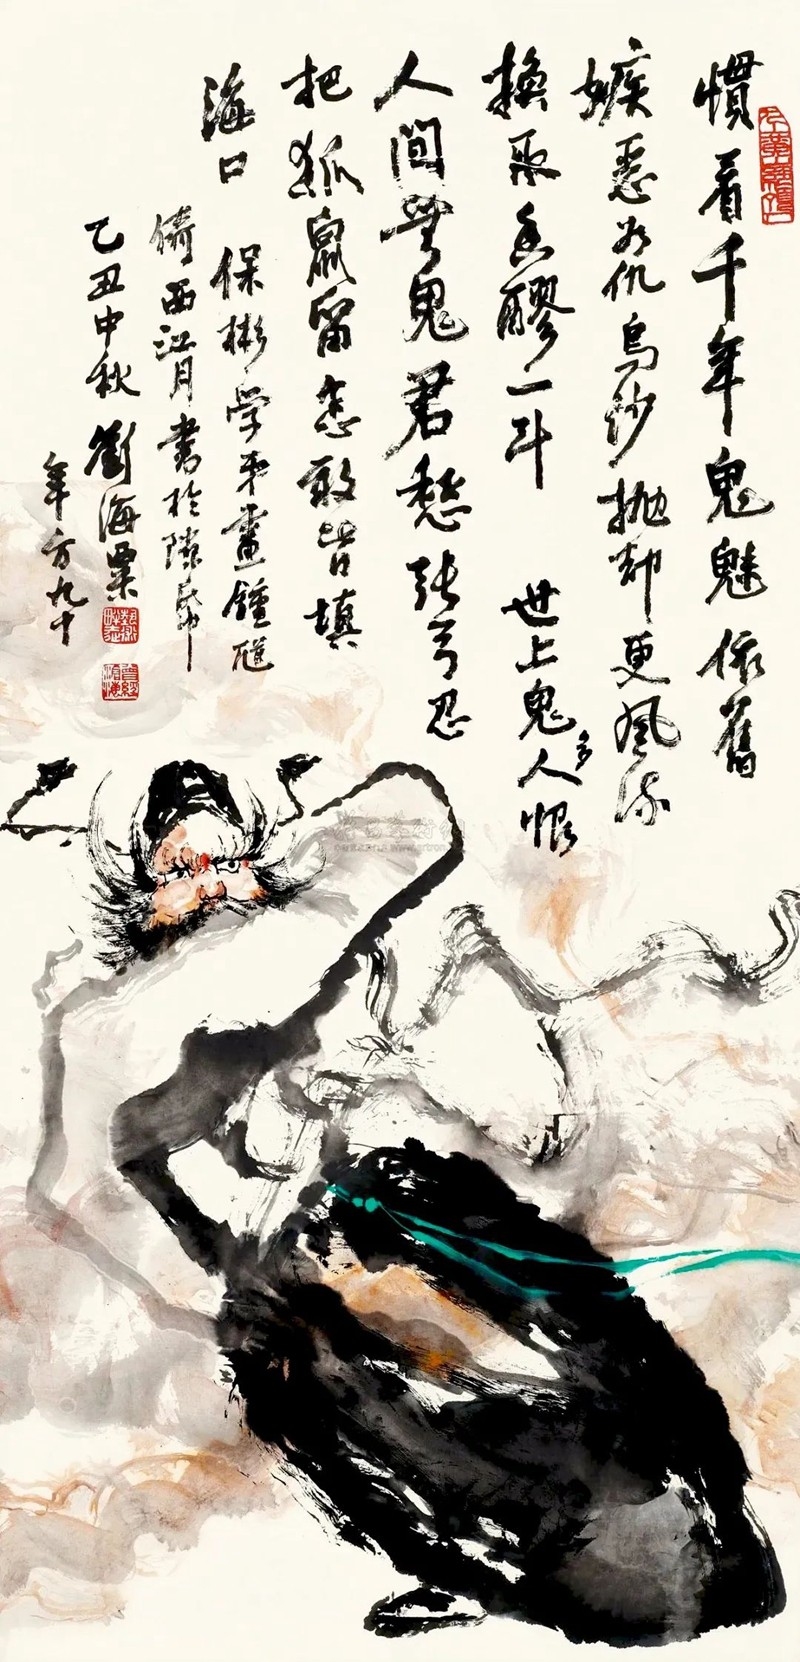 慣看千年鬼魅依舊
嫉惡如仇烏紗抛却更風流
換取香醪一斗 世上鬼多人恨
人間無鬼君愁 張弓忍
把狐鼠留 敢皆填
海口 保彬学弟畫鍾馗
倚西江月書於
乙丑中秋 劉海粟
年方九十